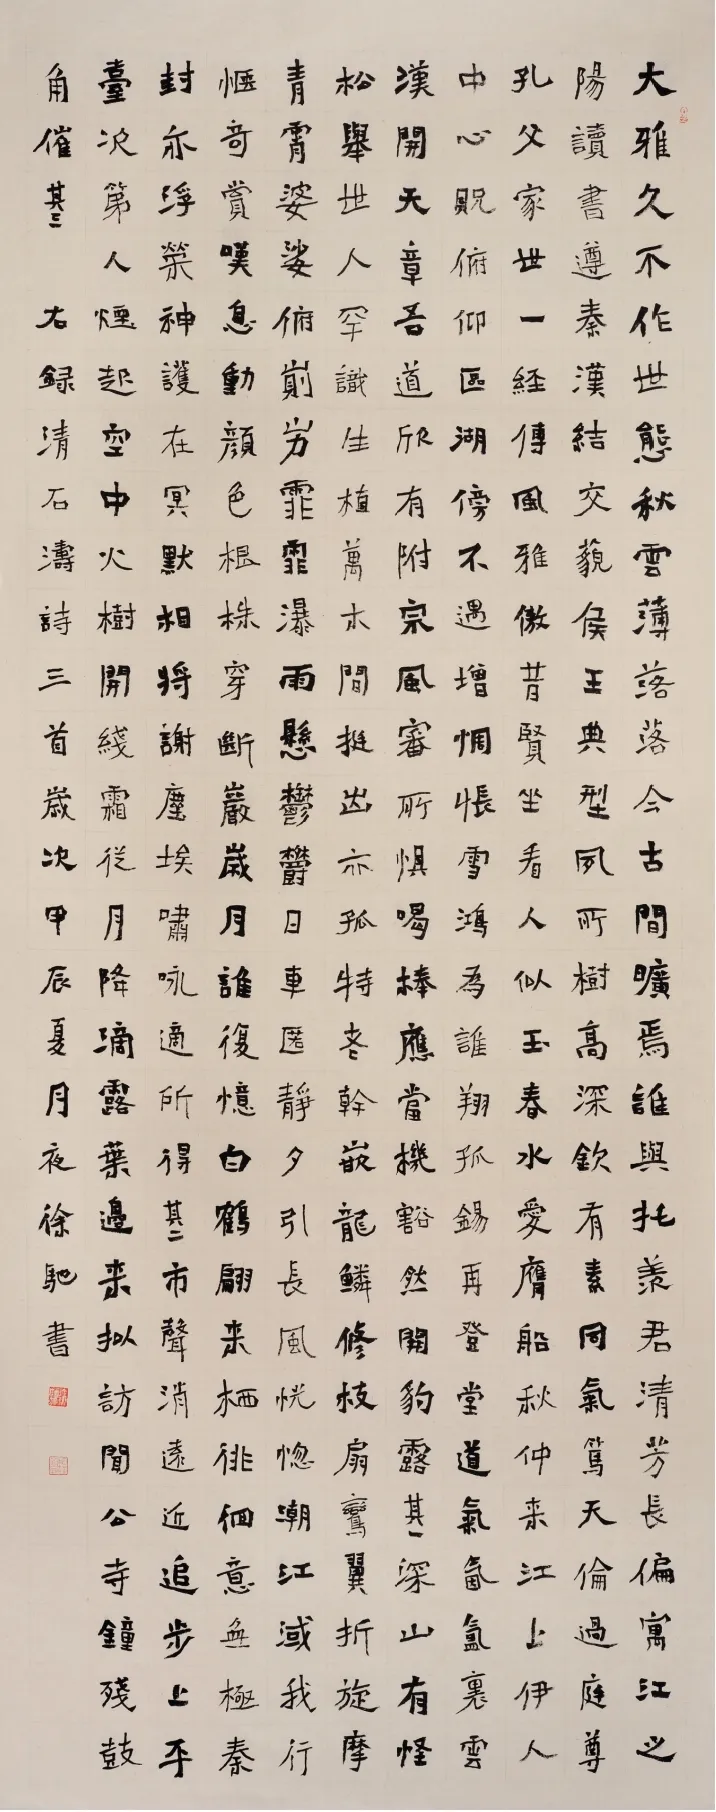 大雅久不作世態秋雲薄落落今古間曠焉誰與托羨君清芳長偏寓江之
陽讀書遵秦漢結交藐侯王典型夙所樹高深欽有素同氣篤天倫過庭尊
孔父家世一經傳風雅傲昔賢坐看人似玉春水愛膺船秋仲来江上伊人
中心貺俯仰匡湖傍不遇增惆悵雪鴻為誰翔孤錫再登堂道氣氤氳裏雲
漢開天章吾道欣有附宗風審所惧喝棒應當機豁然開豹露其一深山有怪
松舉世人罕識生植萬木間挺出亦孤特老幹嵌龍鱗修枝扇鸞翼折旋摩
青霄婆娑俯崱屴霏霏瀑雨懸鬱鬱日車匿靜夕引長風恍惚潮江域我行
愜奇賞嘆息動顏色根株穿斷巖歲月誰復憶白鶴翩来栖徘徊意無極秦
封亦浮榮神護在冥默相將謝塵埃嘯咏適所得其二市聲消遠近追步上平
臺次第人煙起空中火樹開綫霜從月降滴露葉邊来拟訪聞公寺鐘殘鼓
角催其三 右録清石濤詩三首歲次甲辰夏月夜徐馳書